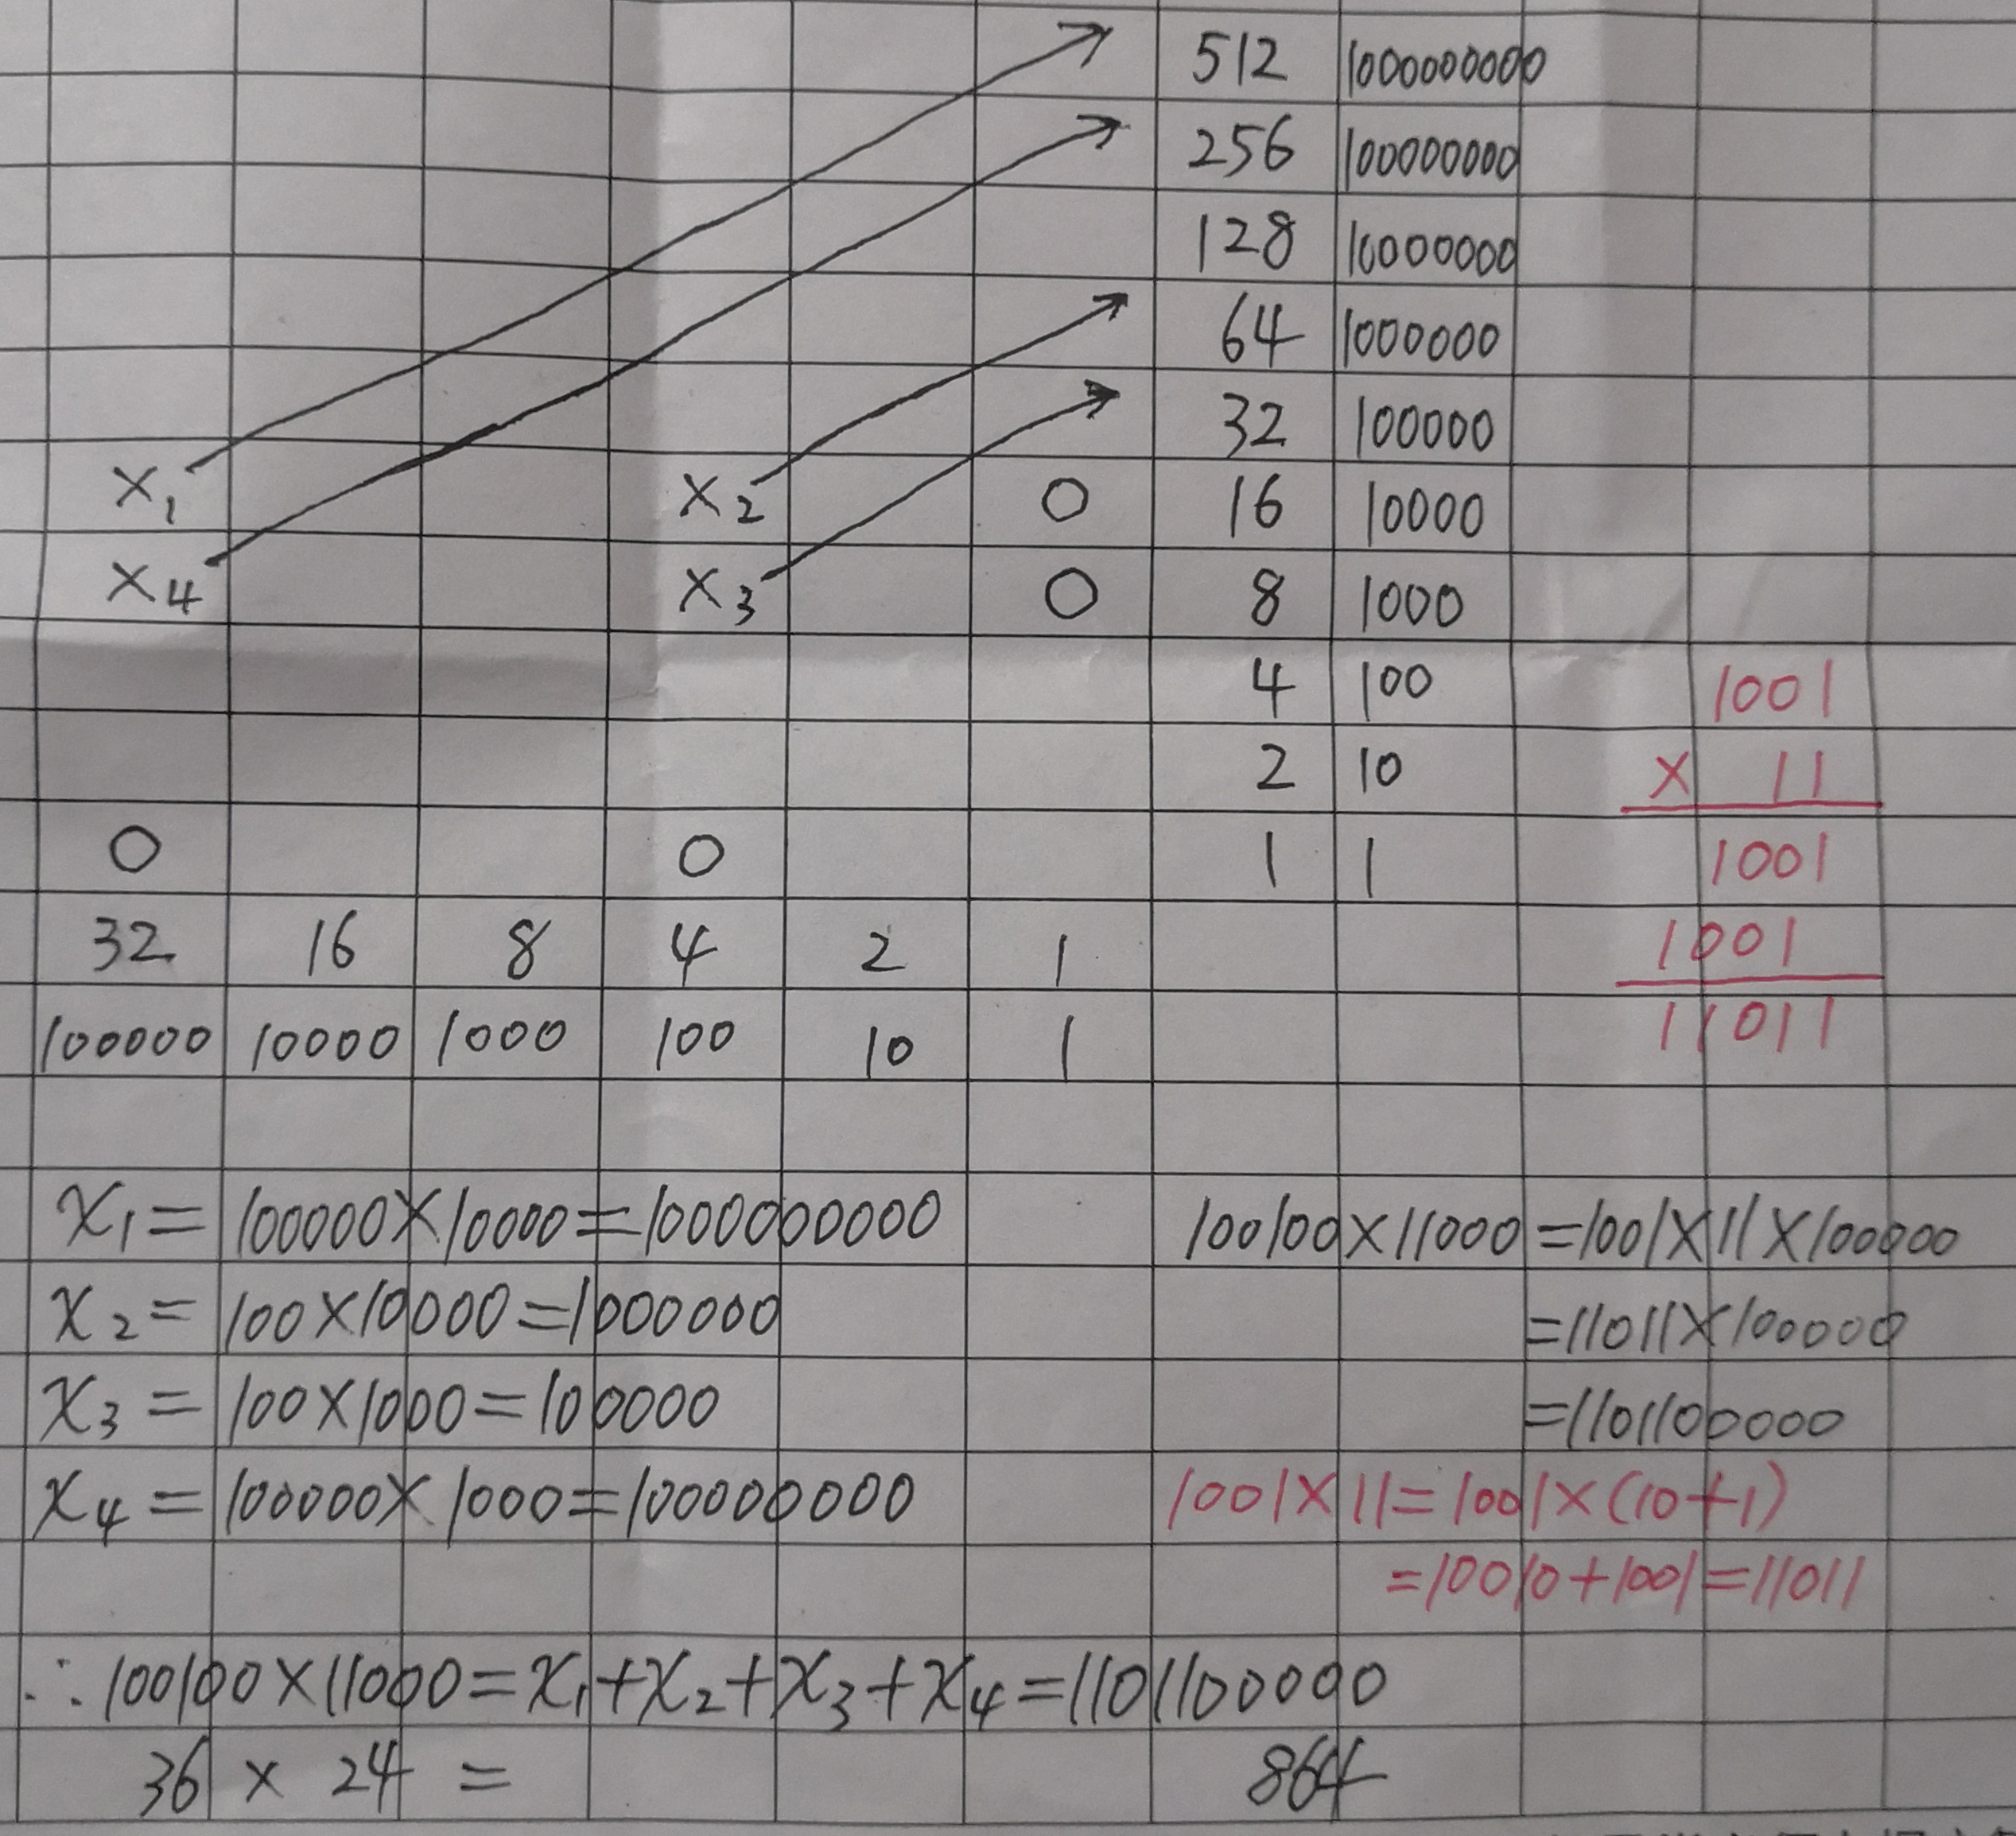 512 1000000000
256 100000000
128 10000000
64 1000000
32 100000
x₁ x₂ 0 16 10000
x₄ x₃ 0 8 1000
4 100 1001
2 10 × 11
0 0 1 1 1001
32 16 8 4 2 1 1001
100000 10000 1000 100 10 1 11011
x₁= 100000×10000=1000000000 100100×11000=1001×11×100000
x₂= 100×10000=1000000 =11011×100000
x₃= 100×1000=100000 =1101100000
x₄= 100000×1000=100000000 1001×11=1001×(10+1)
=10010+1001=11011
∴100100×11000=x₁+x₂+x₃+x₄=1101100000
36 × 24 = 864